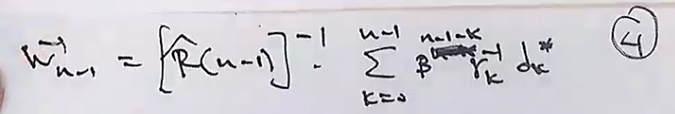 w⃗ₙ₋₁ = [R̂(n-1)]⁻¹ · Σₖ₌₀ⁿ⁻¹ βⁿ⁻¹⁻ᵏ r⃗ₖ dₖ* ④